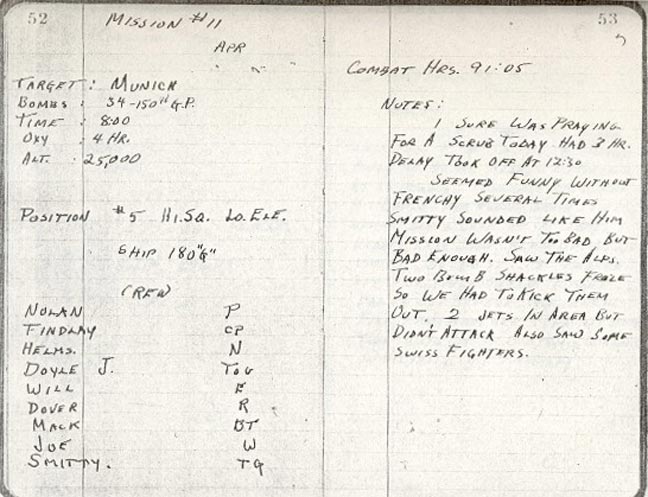 52
MISSION #11
APR
TARGET: MUNICH
BOMBS: 34-150# G.P.
TIME: 8:00
OXY: 4 HR.
ALT.: 25,000
POSITION #5 HI.SQ. LO.ELE.
SHIP 180"G"
CREW
NOLAN P
FINDLAY CP
HELMS. N
DOYLE J. TOG
WILL E
DOVER R
MACK BT
JOE W
SMITTY. TG
53
COMBAT HRS. 91:05
NOTES:
I SURE WAS PRAYING
FOR A SCRUB TODAY HAD 3 HR.
DELAY TOOK OFF AT 12:30
SEEMED FUNNY WITHOUT
FRENCHY SEVERAL TIMES
SMITTY SOUNDED LIKE HIM
MISSION WASN'T TOO BAD BUT
BAD ENOUGH. SAW THE ALPS.
TWO BOMB SHACKLES FROZE
SO WE HAD TO KICK THEM
OUT. 2 JETS IN AREA BUT
DIDN'T ATTACK ALSO SAW SOME
SWISS FIGHTERS.